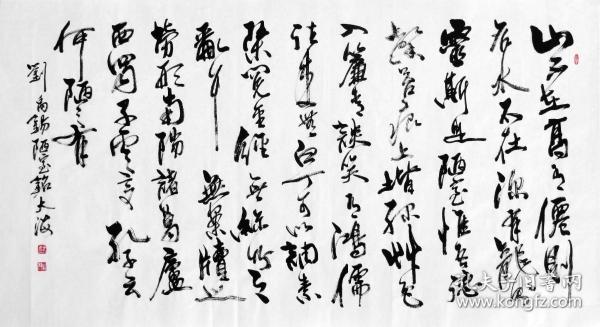 山不在高有僊則
名水不在深有龍則
靈斯是陋室惟吾德
馨苔痕上堦綠艸色
入簾青談笑有鴻儒
往來無白丁可以調素
琴閱金經無絲竹之
亂耳無案牘之
勞形南陽諸葛廬
西蜀子雲亭孔子云
何陋之有
劉禹錫陋室銘大
孔夫子旧书网
kongfz.com